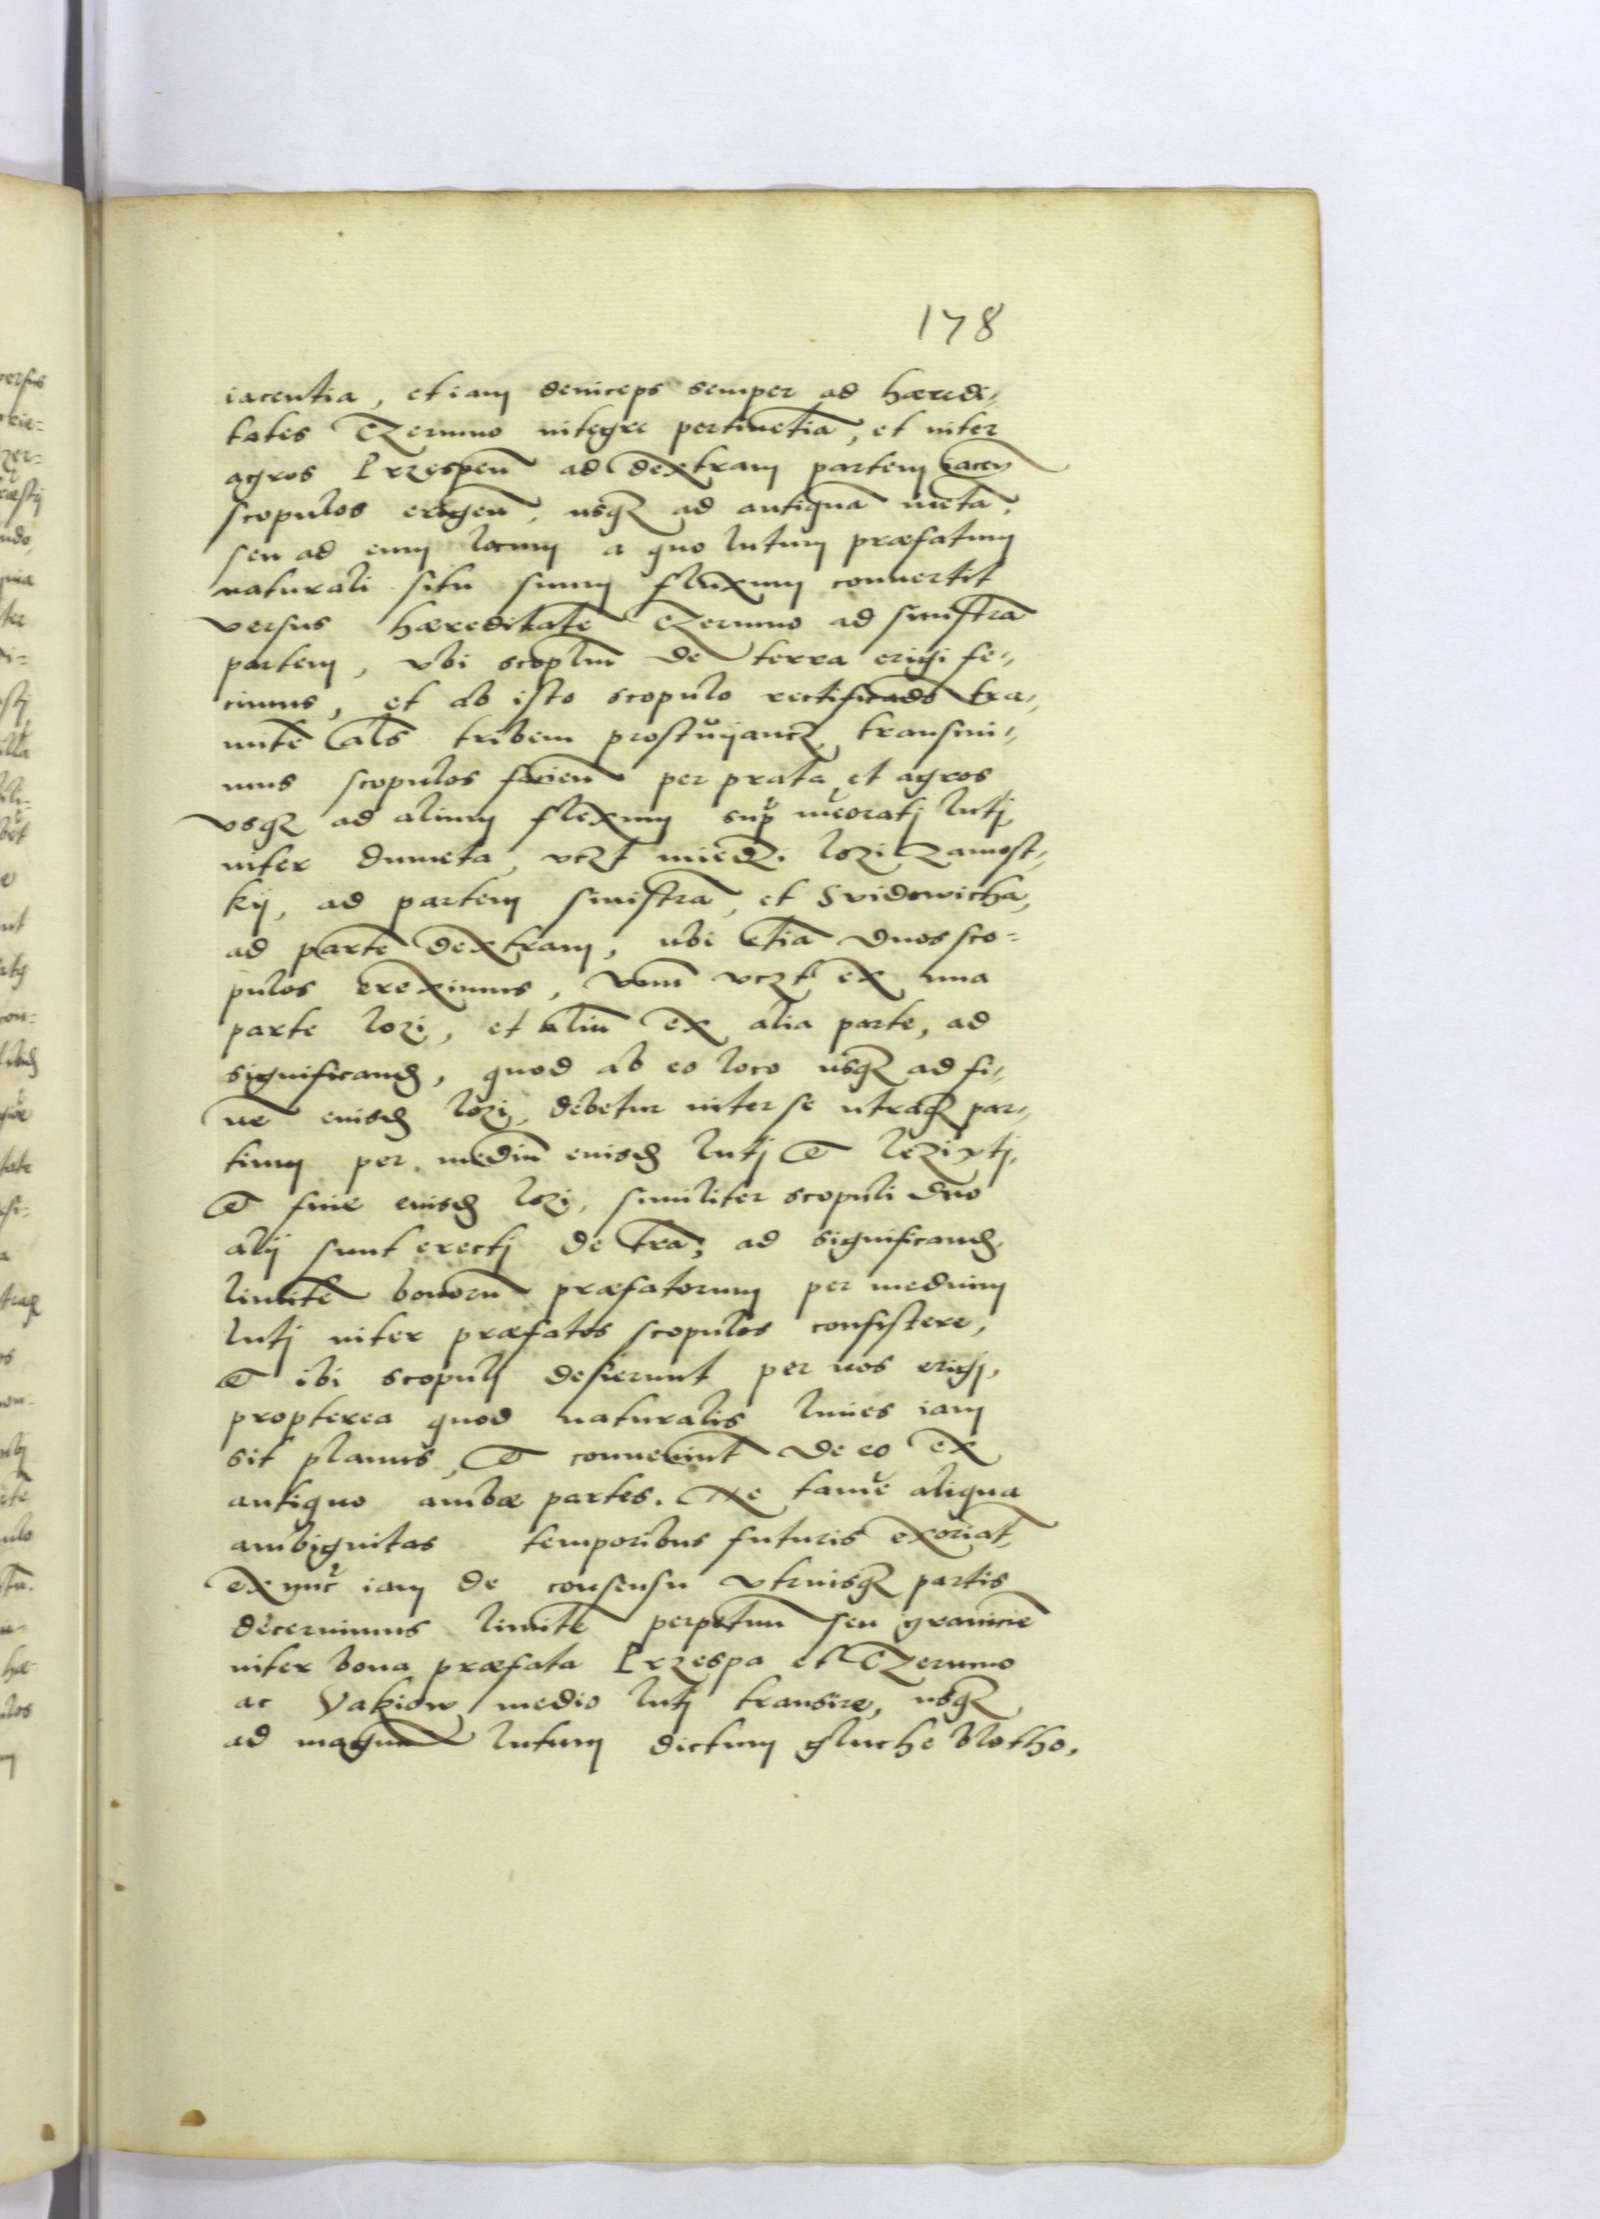 178
iacentia, etiam deniceps semper ad hæredi„
tates Czernno integre pertinẽtia, et inter
agros Przespeñ ad dextram partem iaceñ
scopulos erigeñ, usqꝫ ad antiquã metã,
seu ad eum locum a quo lutum præfatum
naturali situ suum fluxum conuertit
versus hæreditatẽ Czernno ad sinistrã
partem, vbi scoplũ de terra erigi fe„
cimus, et ab isto scopulo rectificado tra„
mitẽ als tribem transiui„
mus scopulos facieñ per prata et agros
vsqꝫ ad alium flexum sup mẽoratj lutj
inter dumeta, vczt miedzi lozi Zamost„
kÿ, ad partem sinistrã, et Svidowicha,
ad partẽ dextram, ubi etiã duos sco=
pulos ereximus, vnũ vczt ex una
parte lozi, et aliũ ex alia parte, ad
significand, quod ab eo loco usqꝫ ad fi„
nẽ eiusd lozi, debetur inter se utraqꝫ par„
tium per mediũ eiusd lutj et
et fine eiusd lozi, similiter scopuli duo
alÿ sunt erectj de trã, ad significand,
limitẽ bonorũ præfatorum per medium
lutj inter præfatos scopulos consistere,
et ibi scopulj desierunt per nos erigj,
propterea quod naturalis limes iam
sit planus, et conueniũt de eo ex
antiquo ambæ partes. Ne tamẽ aliqua
ambiguitas temporibus futuris exoriat,
ex nũc iam de consensu vtriusqꝫ partis
decernimus limitẽ perpetuũ seu graniciẽ
inter bona præfata Przespa et Czernno
ac Vakiow medio lutj transire, usqꝫ
ad magnũ lutum dictum gluche blotho,